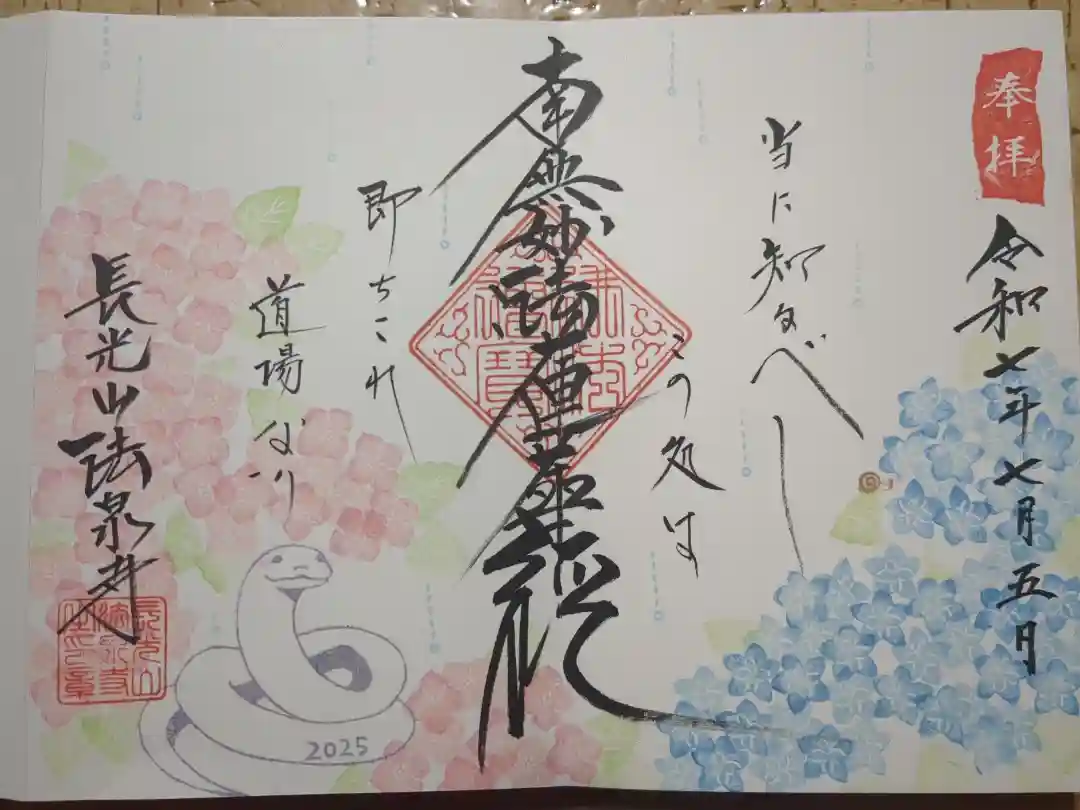 奉拝
令和七年七月五日
当に知るべし
この処は
南無妙法蓮華経
即ちこれ
道場なり
長光山法泉寺
長光山
法泉寺
2025